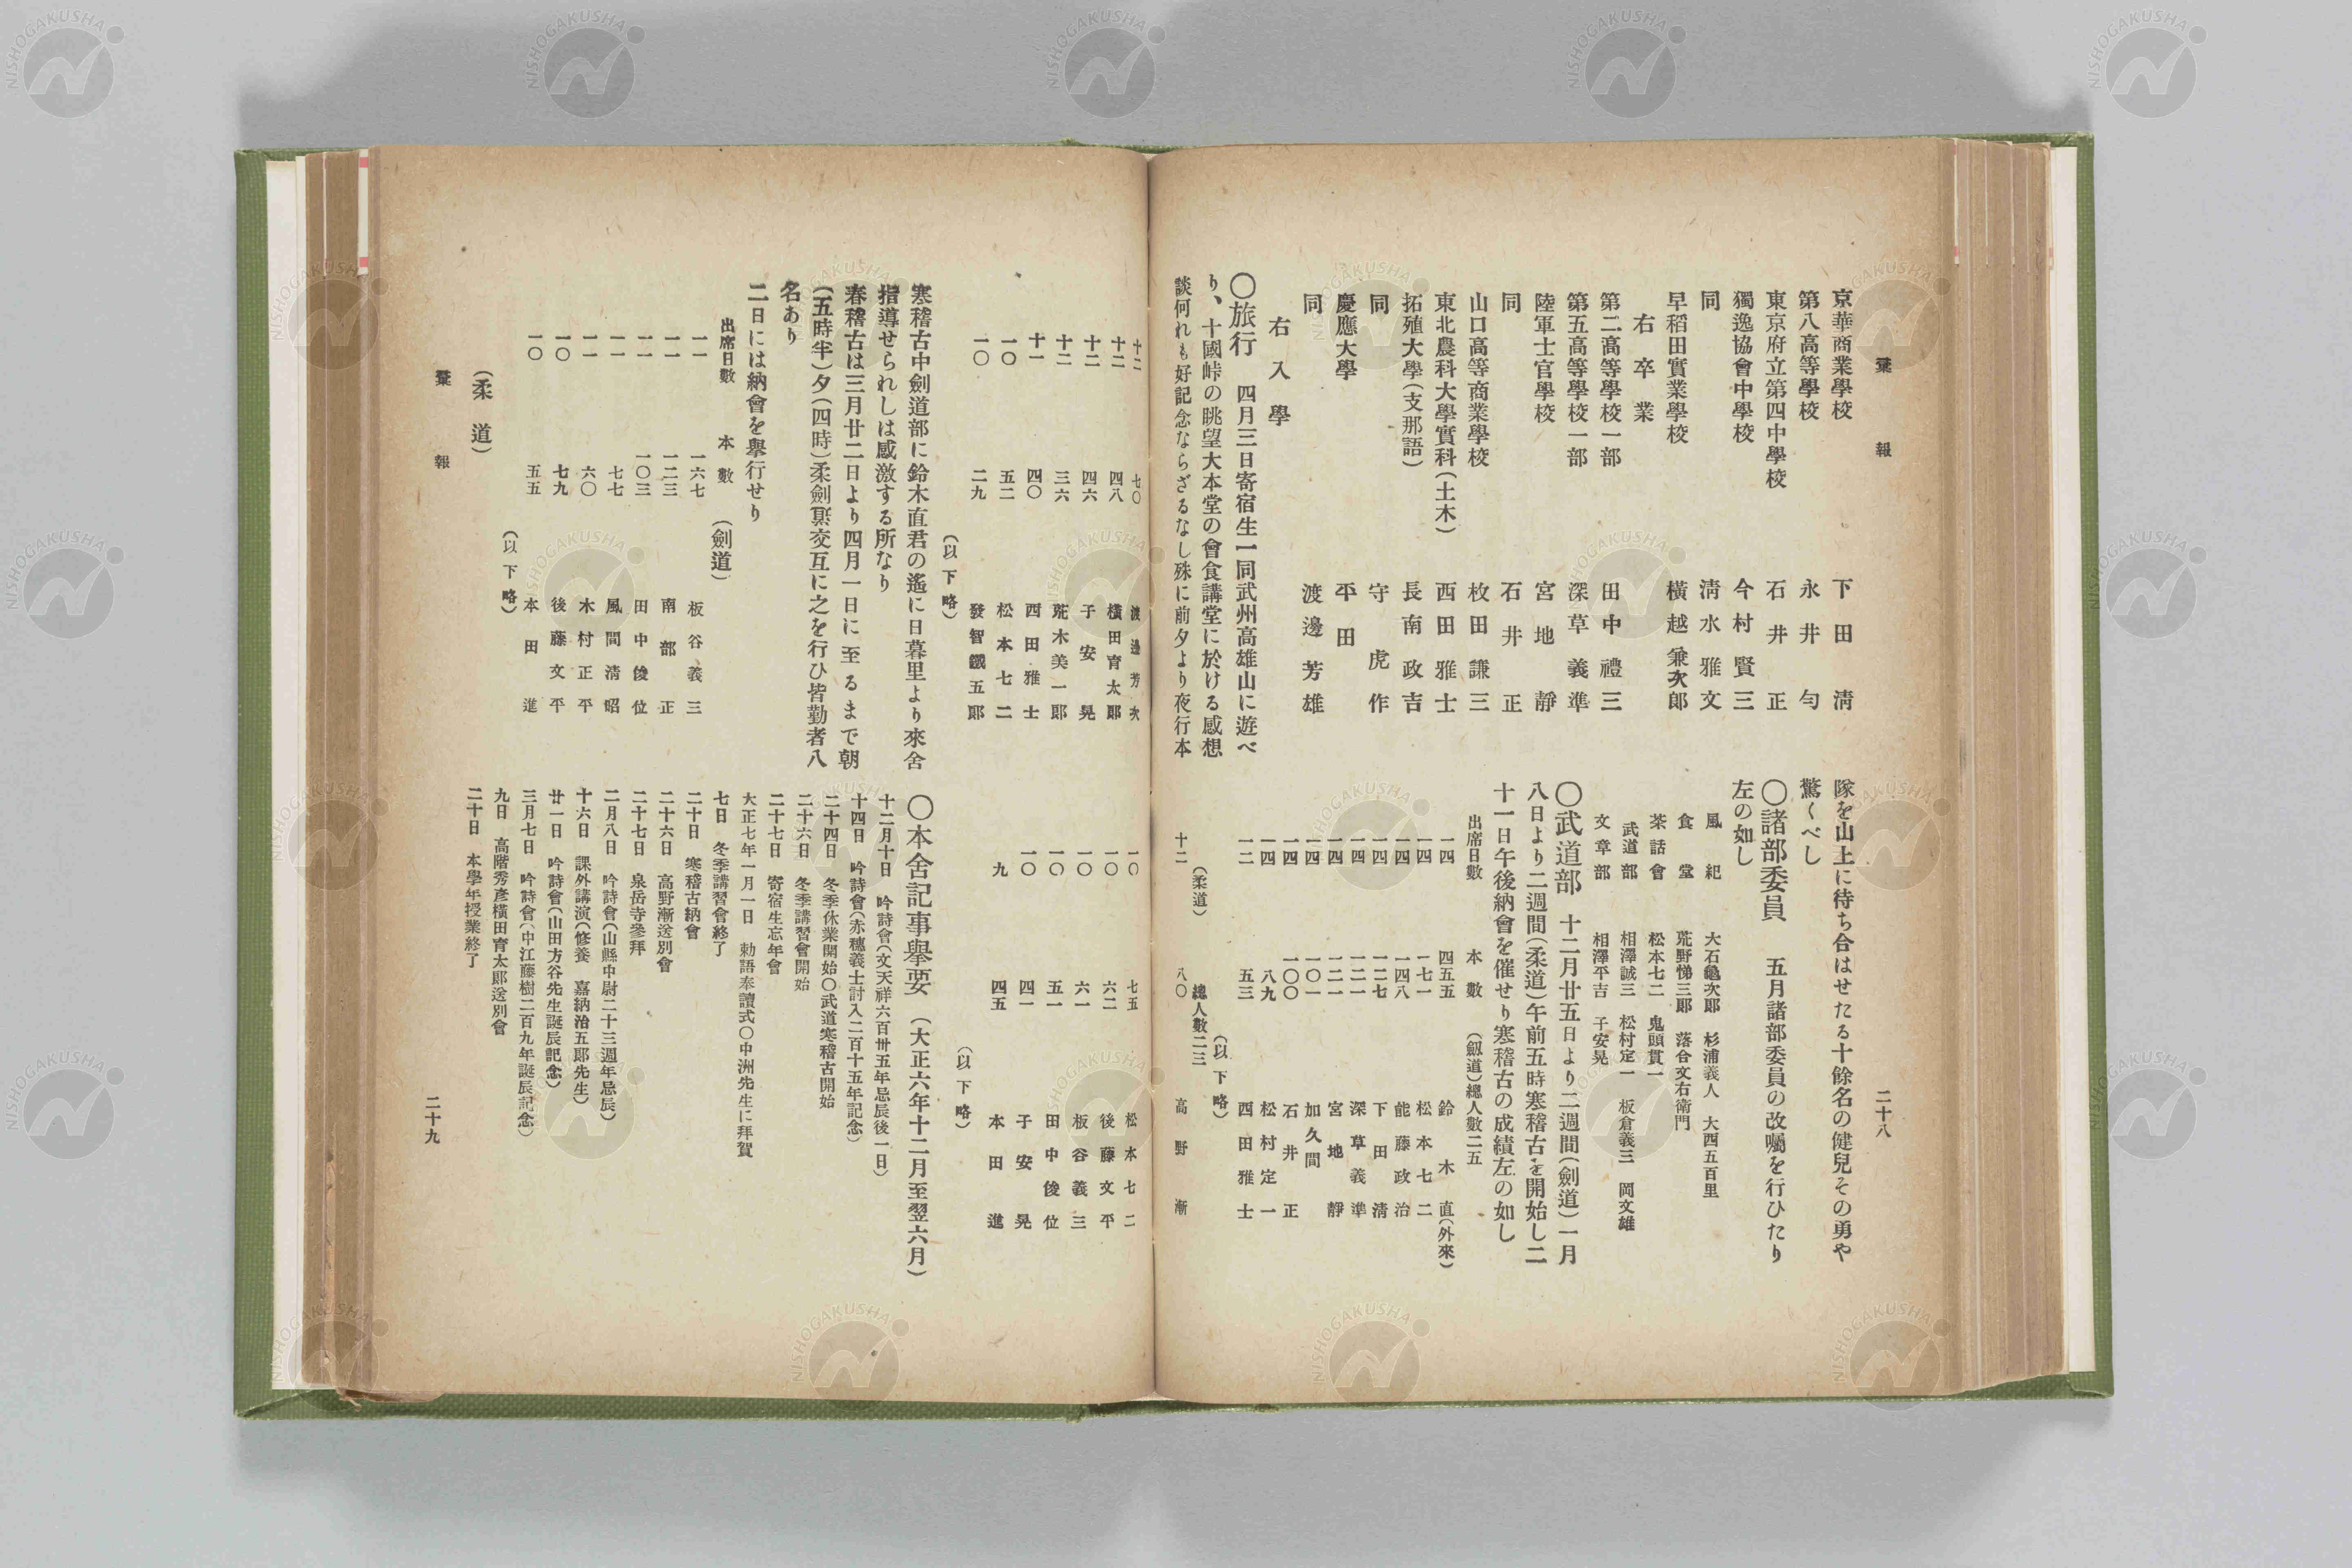 彙報
京華商業學校　下田清
第八高等學校　永井勻
東京府立第四中學校　石井正
獨逸協會中學校　今村賢三
同　淸水雅文
早稻田實業學校　橫越兼次郎
右卒業
第二高等學校一部　田中禮三
第五高等學校一部　深草義準
陸軍士官學校　宮地靜
同　石井正
山口高等商業學校　枚田謙三
東北農科大學實科(土木)　西田雅士
拓殖大學(支那語)　長南政吉
同　守虎作
慶應大學　平田
同　渡邊芳雄
右入學
〇旅行　四月三日寄宿生一同武州高雄山に遊べ
り、十國峠の眺望大本堂の會食講堂に於ける感想
談何れも好記念ならざるなし殊に前夕より夜行本
隊を山上に待ち合はせたる十餘名の健兒その勇や
驚くべし
〇諸部委員　五月諸部委員の改囑を行ひたり
左の如し
風紀　大石龜次郎　杉浦義人　大西五百里
食堂　荒野悌三郎　落合文右衛門
茶話會　松本七二　鬼頭貫一
武道部　相澤誠三　松村定一　板倉義三　岡文雄
文章部　相澤平吉　子安晃
〇武道部　十二月廿五日より二週間(劍道)一月
八日より二週間(柔道)午前五時寒稽古を開始し二
十一日午後納會を催せり寒稽古の成績左の如し
出席日數　本數　(劍道)總人數二五
一四　四五五　鈴木直(外來)
一四　一七一　松本七二
一四　一四八　能藤政治
一四　一二七　下田清
一四　一二一　深草義準
一四　一二一　宮地靜
一四　一〇一　加久間
一四　一〇〇　石井正
一四　八九　松村定一
一二　五三　西田雅士
(以下略)
(柔道)　總人數二三
十二　八〇　高野漸
二十八
十二　七〇　渡邊芳次
十二　四八　橫田育太郎
十二　四六　子安晃
十二　三六　荒木美一郎
十一　四〇　西田雅士
一〇　五二　松本七二
一〇　二九　發智鐵五郎
(以下略)
寒稽古中劍道部に鈴木直君の遙に日暮里より來舍
指導せられしは感激する所なり
春稽古は三月廿二日より四月一日に至るまで朝
(五時半)夕(四時)柔劍槑交互に之を行ひ皆勤者八
名あり
二日には納會を擧行せり
出席日數　本數　(劍道)
一一　一六七　板谷義三
一一　一二三　南部正
一一　一〇三　田中俊位
一一　七七　風間清昭
一一　六〇　木村正平
一〇　七九　後藤文平
一〇　五五　本田進
(以下略)
(柔道)
一〇　七五　松本七二
一〇　六二　後藤文平
一〇　六一　板谷義三
一〇　五一　田中俊位
一〇　四一　子安晃
九　四五　本田進
(以下略)
〇本舍記事擧要　(大正六年十二月至翌六月)
十二月十日　吟詩會(文天祥六百卅五年忌辰後一日)
十四日　吟詩會(赤穗義士討入二百十五年記念)
二十四日　冬季休業開始〇武道寒稽古開始
二十六日　冬季講習會開始
二十七日　寄宿生忘年會
大正七年一月一日　勅語奉讀式〇中洲先生に拜賀
七日　冬季講習會終了
二十日　寒稽古納會
二十六日　高野漸送別會
二十七日　泉岳寺參拜
二月八日　吟詩會(山縣中尉二十三週年忌辰)
十六日　課外講演(修養　嘉納治五郎先生)
廿一日　吟詩會(山田方谷先生誕辰記念)
三月七日　吟詩會(中江藤樹二百九年誕辰記念)
九日　高階秀彥橫田育太郎送別會
二十日　本學年授業終了
彙報
二十九
NISHOGAKUSHA